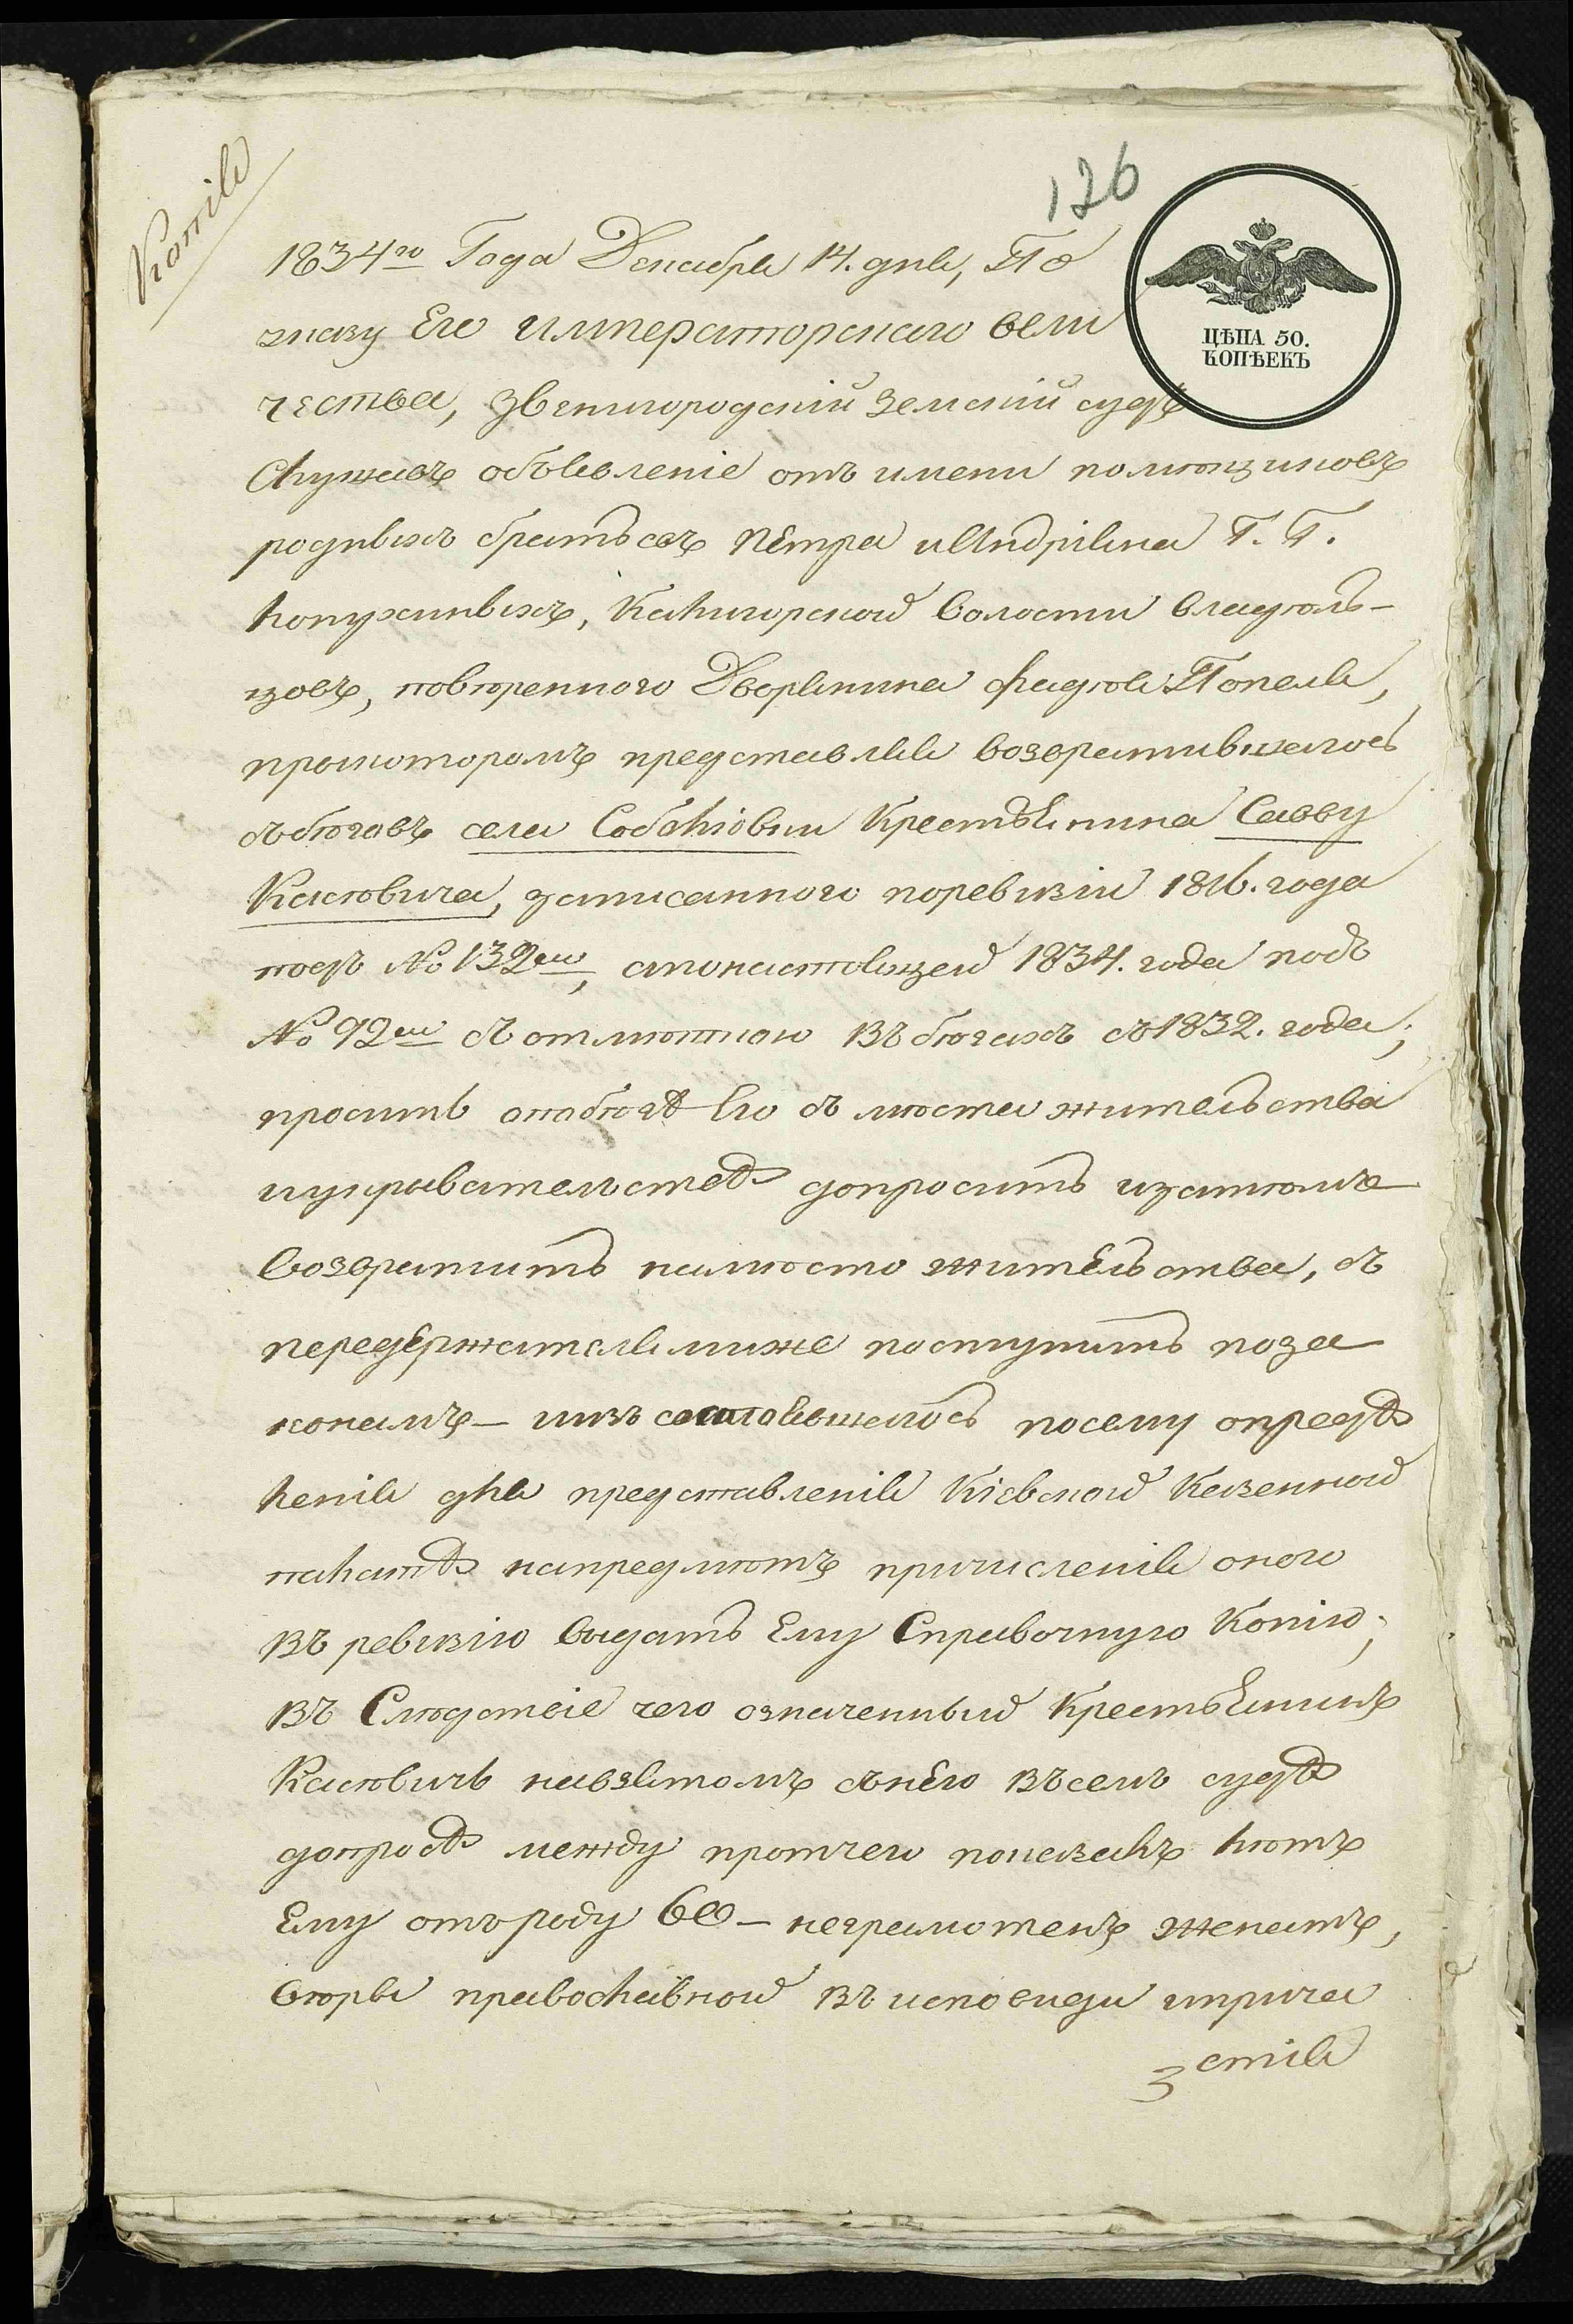 Копія
126
ЦѢНА 50.
КОПѢЕКЪ
1834го Года Декабря 14. дня, По
указу Его императорскаго вели
чества, Звенигородскій Земскій судъ
Слушавъ объявленіе отъ имени помѣщиковъ
родныхъ братьевъ Петра и Андріяна Г. Г.
Лопухиныхъ, Калигорской Волости владѣль-
цовъ, повѣреннаго Дворянина Фадѣя Попеля,
при которомъ представляя возвратившегось
съ бѣговъ села Соболѣовки Крестьянина Савву
Касѣовича, записанного по ревизіи 1816. года
подъ № 132ем, а по настоящей 1834. года подъ
№ 92ем съ отмѣткою въ бѣгахъ съ 1832. года;
проситъ о побѣгѣ Его съ мѣста жительства
и укрывательствѣ допросить и затѣмъ
возвратить на мѣсто жительства, съ
передержателями же поступить по за
конамъ – и изъ состоявшегось по сему опредѣ
ленія для представленія Кіевской Казенной
палатѣ на предмѣтъ причисленія оного
въ ревизію выдать Ему Справочную Копію;
въ Слѣдствіе чего означенный Крестьянинъ
Касѣовичъ на взятомъ съ него въ семъ судѣ
допросѣ между протчего показалъ лѣтъ
Ему отъ роду 60 – не грамотенъ женатъ,
вѣры православной въ исповѣди и прича
стія